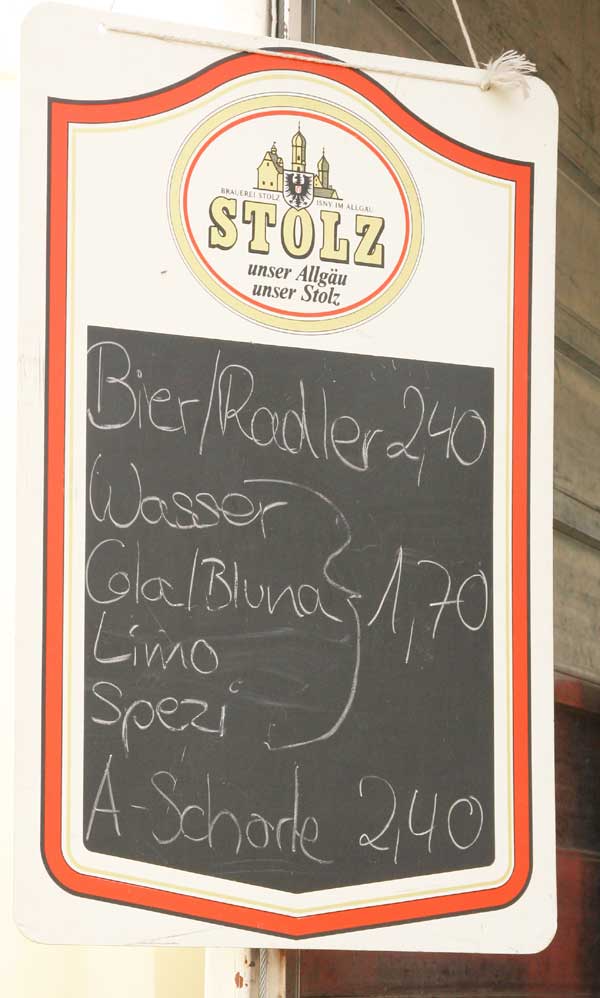 BRAUEREI STOLZ ISNY IM ALLGÄU
STOLZ
unser Allgäu
unser Stolz
Bier/Radler 2,40
Wasser
Cola/Bluna 1,70
Limo
Spezi
A-Schorle 2,40